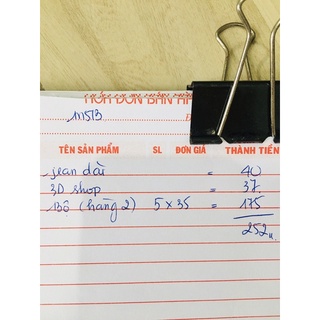 HÓA ĐƠN BÁN HÀ
11573
Đ
TÊN SẢN PHẨM SL ĐƠN GIÁ THÀNH TIỀN
jean dài = 40
3D shop = 37
Bộ (hàng 2) 5 x 35 = 175
252